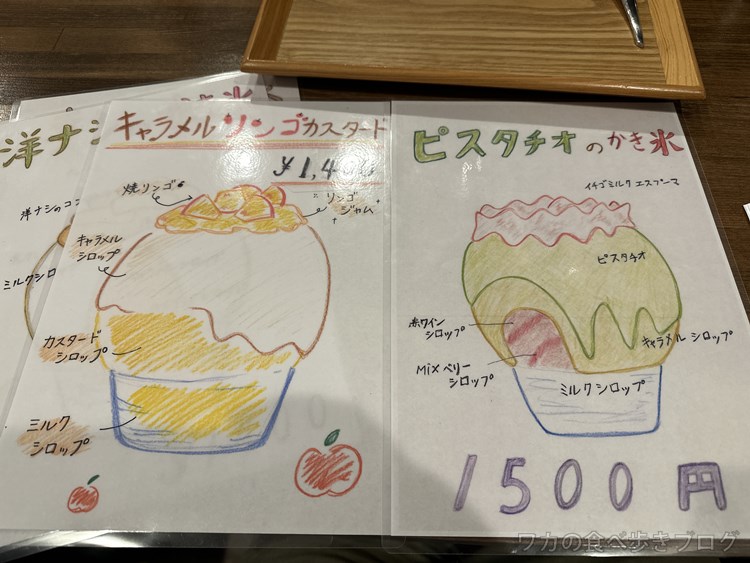 洋ナシ
洋ナシのコン
ミルクシロ
キャラメルリンゴカスタード
¥1,4
焼リンゴ
リンゴ
ジャム
キャラメル
シロップ
カスタード
シロップ
ミルク
シロップ
ピスタチオのかき氷
イチゴミルク エスプーマ
ピスタチオ
赤ワイン
シロップ
キャラメル シロップ
MiX ベリー
シロップ
ミルクシロップ
1500円
ワカの食べ歩きブログ